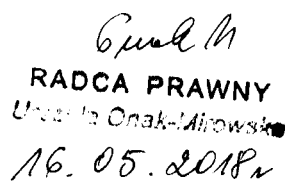 RADCA PRAWNY
Urszula Onak-Mirowska
16.05.2018r